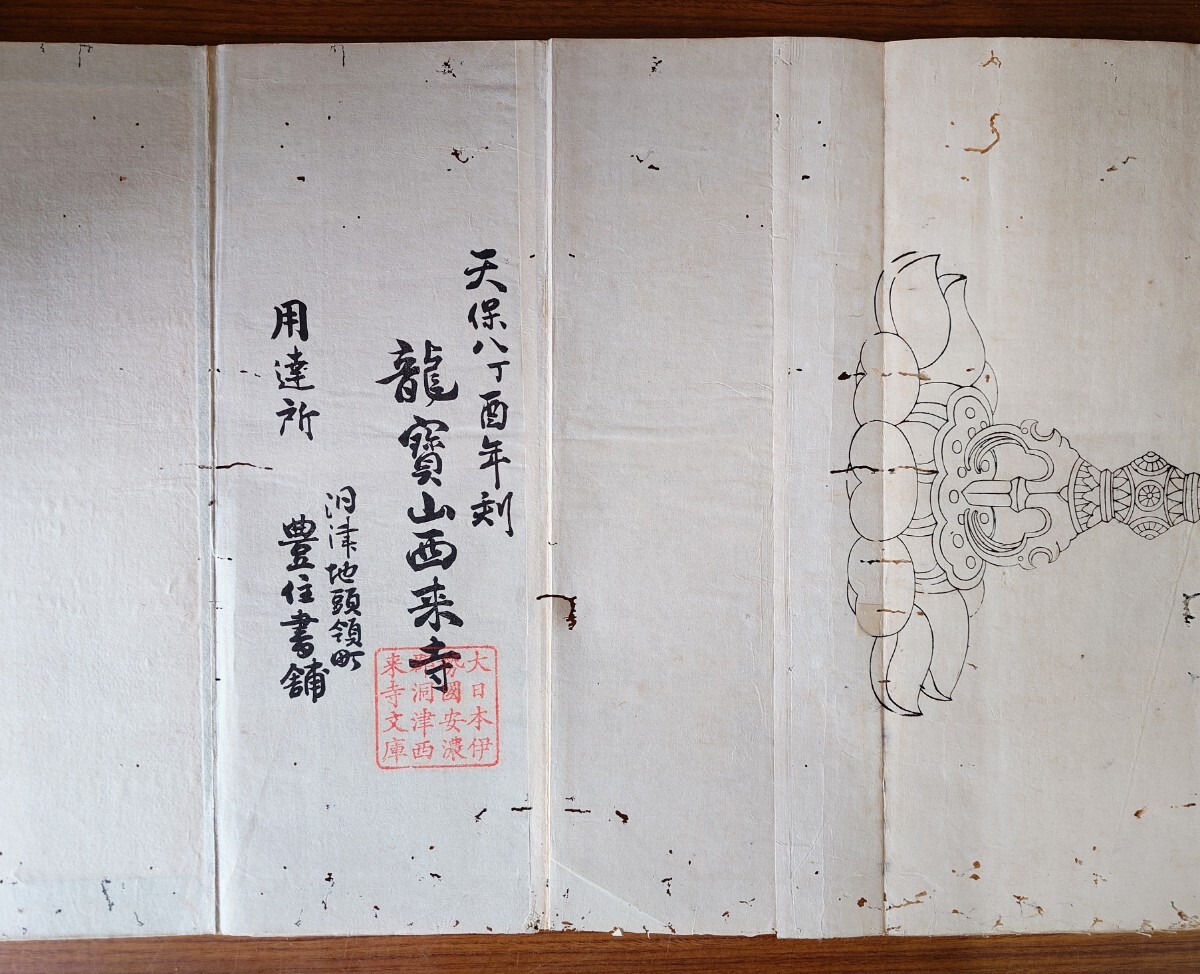 天保八丁酉年刻
龍寳山西来寺
洞津地頭領町
用達所
豊住書舗
大日本伊
勢國安濃
郡洞津西
来寺文庫